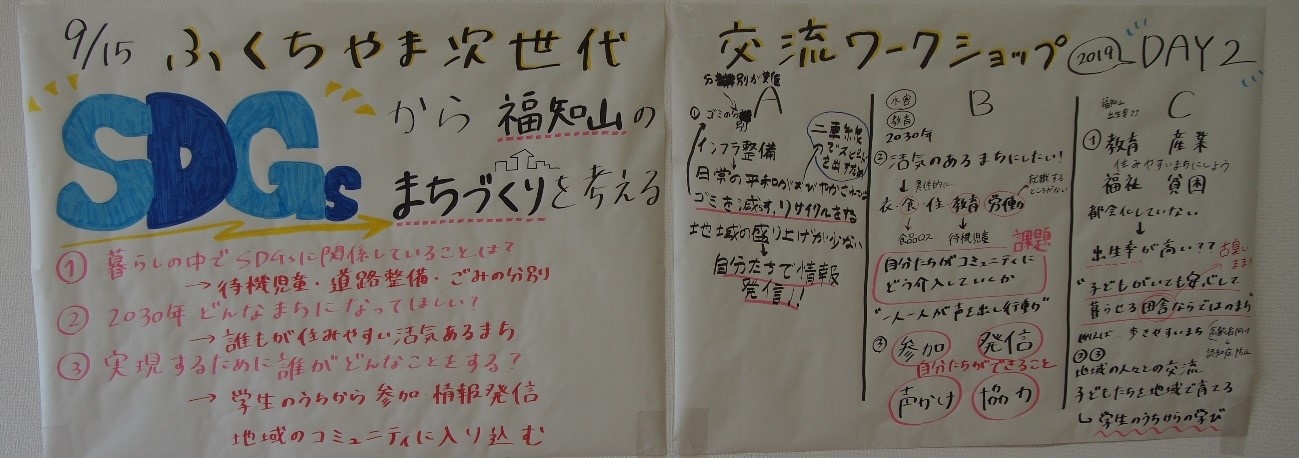 9/15 ふくちやま次世代
SDGs から 福知山の
まちづくりを考える
① 暮らしの中でSDGsに関係していることは?
→ 待機児童・道路整備・ごみの分別
② 2030年どんなまちになってほしい?
→ 誰もが住みやすい活気あるまち
③ 実現するために誰がどんなことをする?
→ 学生のうちから参加・情報発信
地域のコミュニティに入り込む
交流ワークショップ 2019 DAY2
A
① ゴミの分別
インフラ整備
ゴミを減らす,リサイクルをする
地域の盛り上げが少ない
自分たちで情報
発信!!
B
水害
教育
2030年
② 活気のあるまちにしたい!
具体的に
衣・食・住・教育・労働
就職する
ところがない
食品ロス 待機児童 課題
自分たちがコミュニティに
どう介入していくか
"一人一人が声を出し行動"
③ 参加 発信
自分たちができること
声かけ 協力
C
福知山
① 教育 産業
住みやすいまちにしよう
福祉 貧困
都会化していない
出生率が高い??
古臭い
まま!
"子どもがいても安心して
暮らせる田舎ならではのまち"
例えば 歩きやすいまち
②③
地域の人々との交流
子どもたちを地域で育てる
学生のうちからの学び